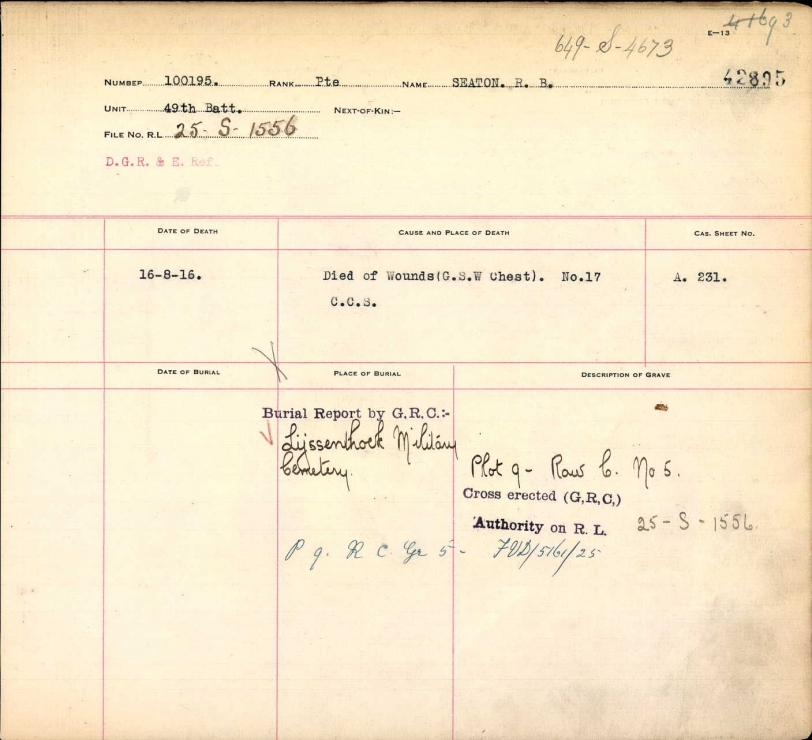 649-S-4673
E-13
NUMBER 100195. RANK Pte NAME SEATON. R. B. 42895
UNIT 49th Batt. NEXT-OF-KIN:-
FILE NO. R.L. 25-S-1556
D.G.R. & E. Ref.
DATE OF DEATH CAUSE AND PLACE OF DEATH CAS. SHEET NO.
16-8-16. Died of Wounds(G.S.W Chest). No.17 A. 231.
C.C.S.
DATE OF BURIAL PLACE OF BURIAL DESCRIPTION OF GRAVE
Burial Report by G.R.C.:-
Lijssenthoek Military
Cemetery. Plot 9 - Row C. No 5.
Cross erected (G,R,C,)
Authority on R. L. 25-S-1556.
P 9. R C Gr 5 -